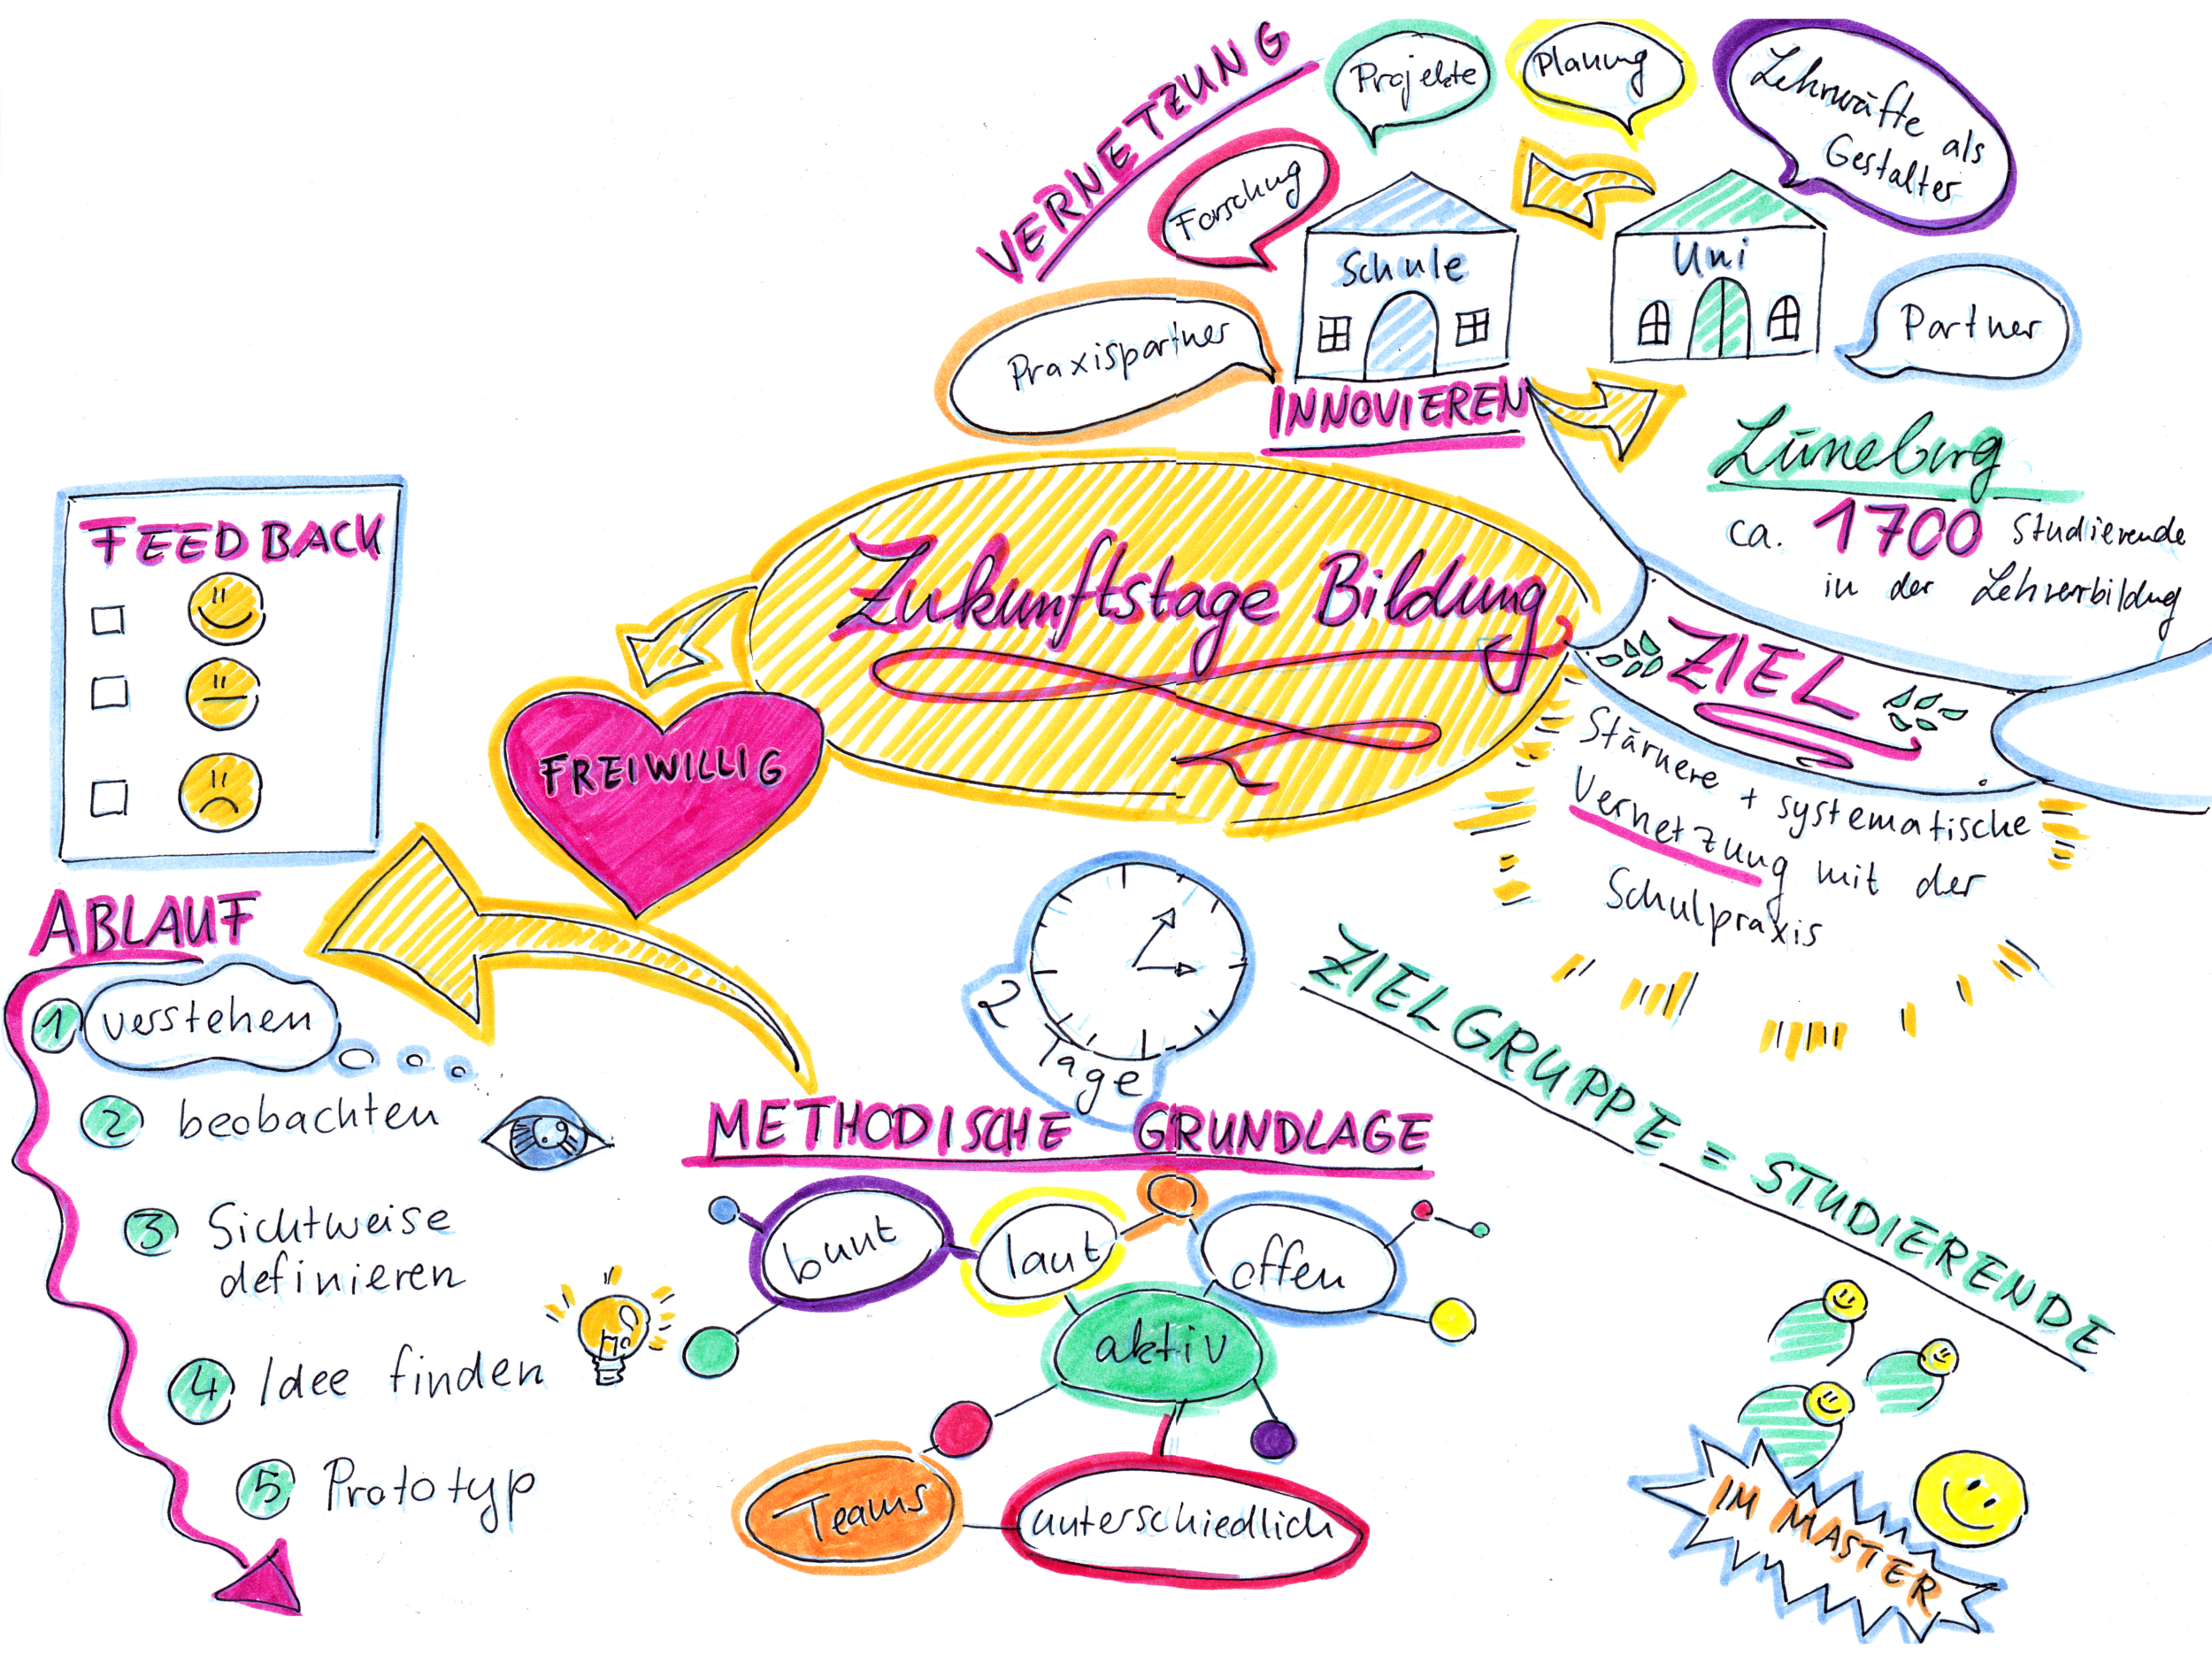 VERNETZUNG
Projekte
Planung
Lehrkräfte als
Gestalter
Forschung
Schule
Uni
Praxispartner
Partner
INNOVIEREN
Lüneburg
ca. 1700 Studierende
in der Lehrerbildung
Zukunftstage Bildung
FEEDBACK
FREIWILLIG
ZIEL
Stärkere + systematische
Vernetzung mit der
Schulpraxis
2 Tage
ZIELGRUPPE = STUDIERENDE
IM MASTER
ABLAUF
1 verstehen
2 beobachten
3 Sichtweise
definieren
4 Idee finden
5 Prototyp
METHODISCHE GRUNDLAGE
bunt
laut
offen
aktiv
Teams
unterschiedlich